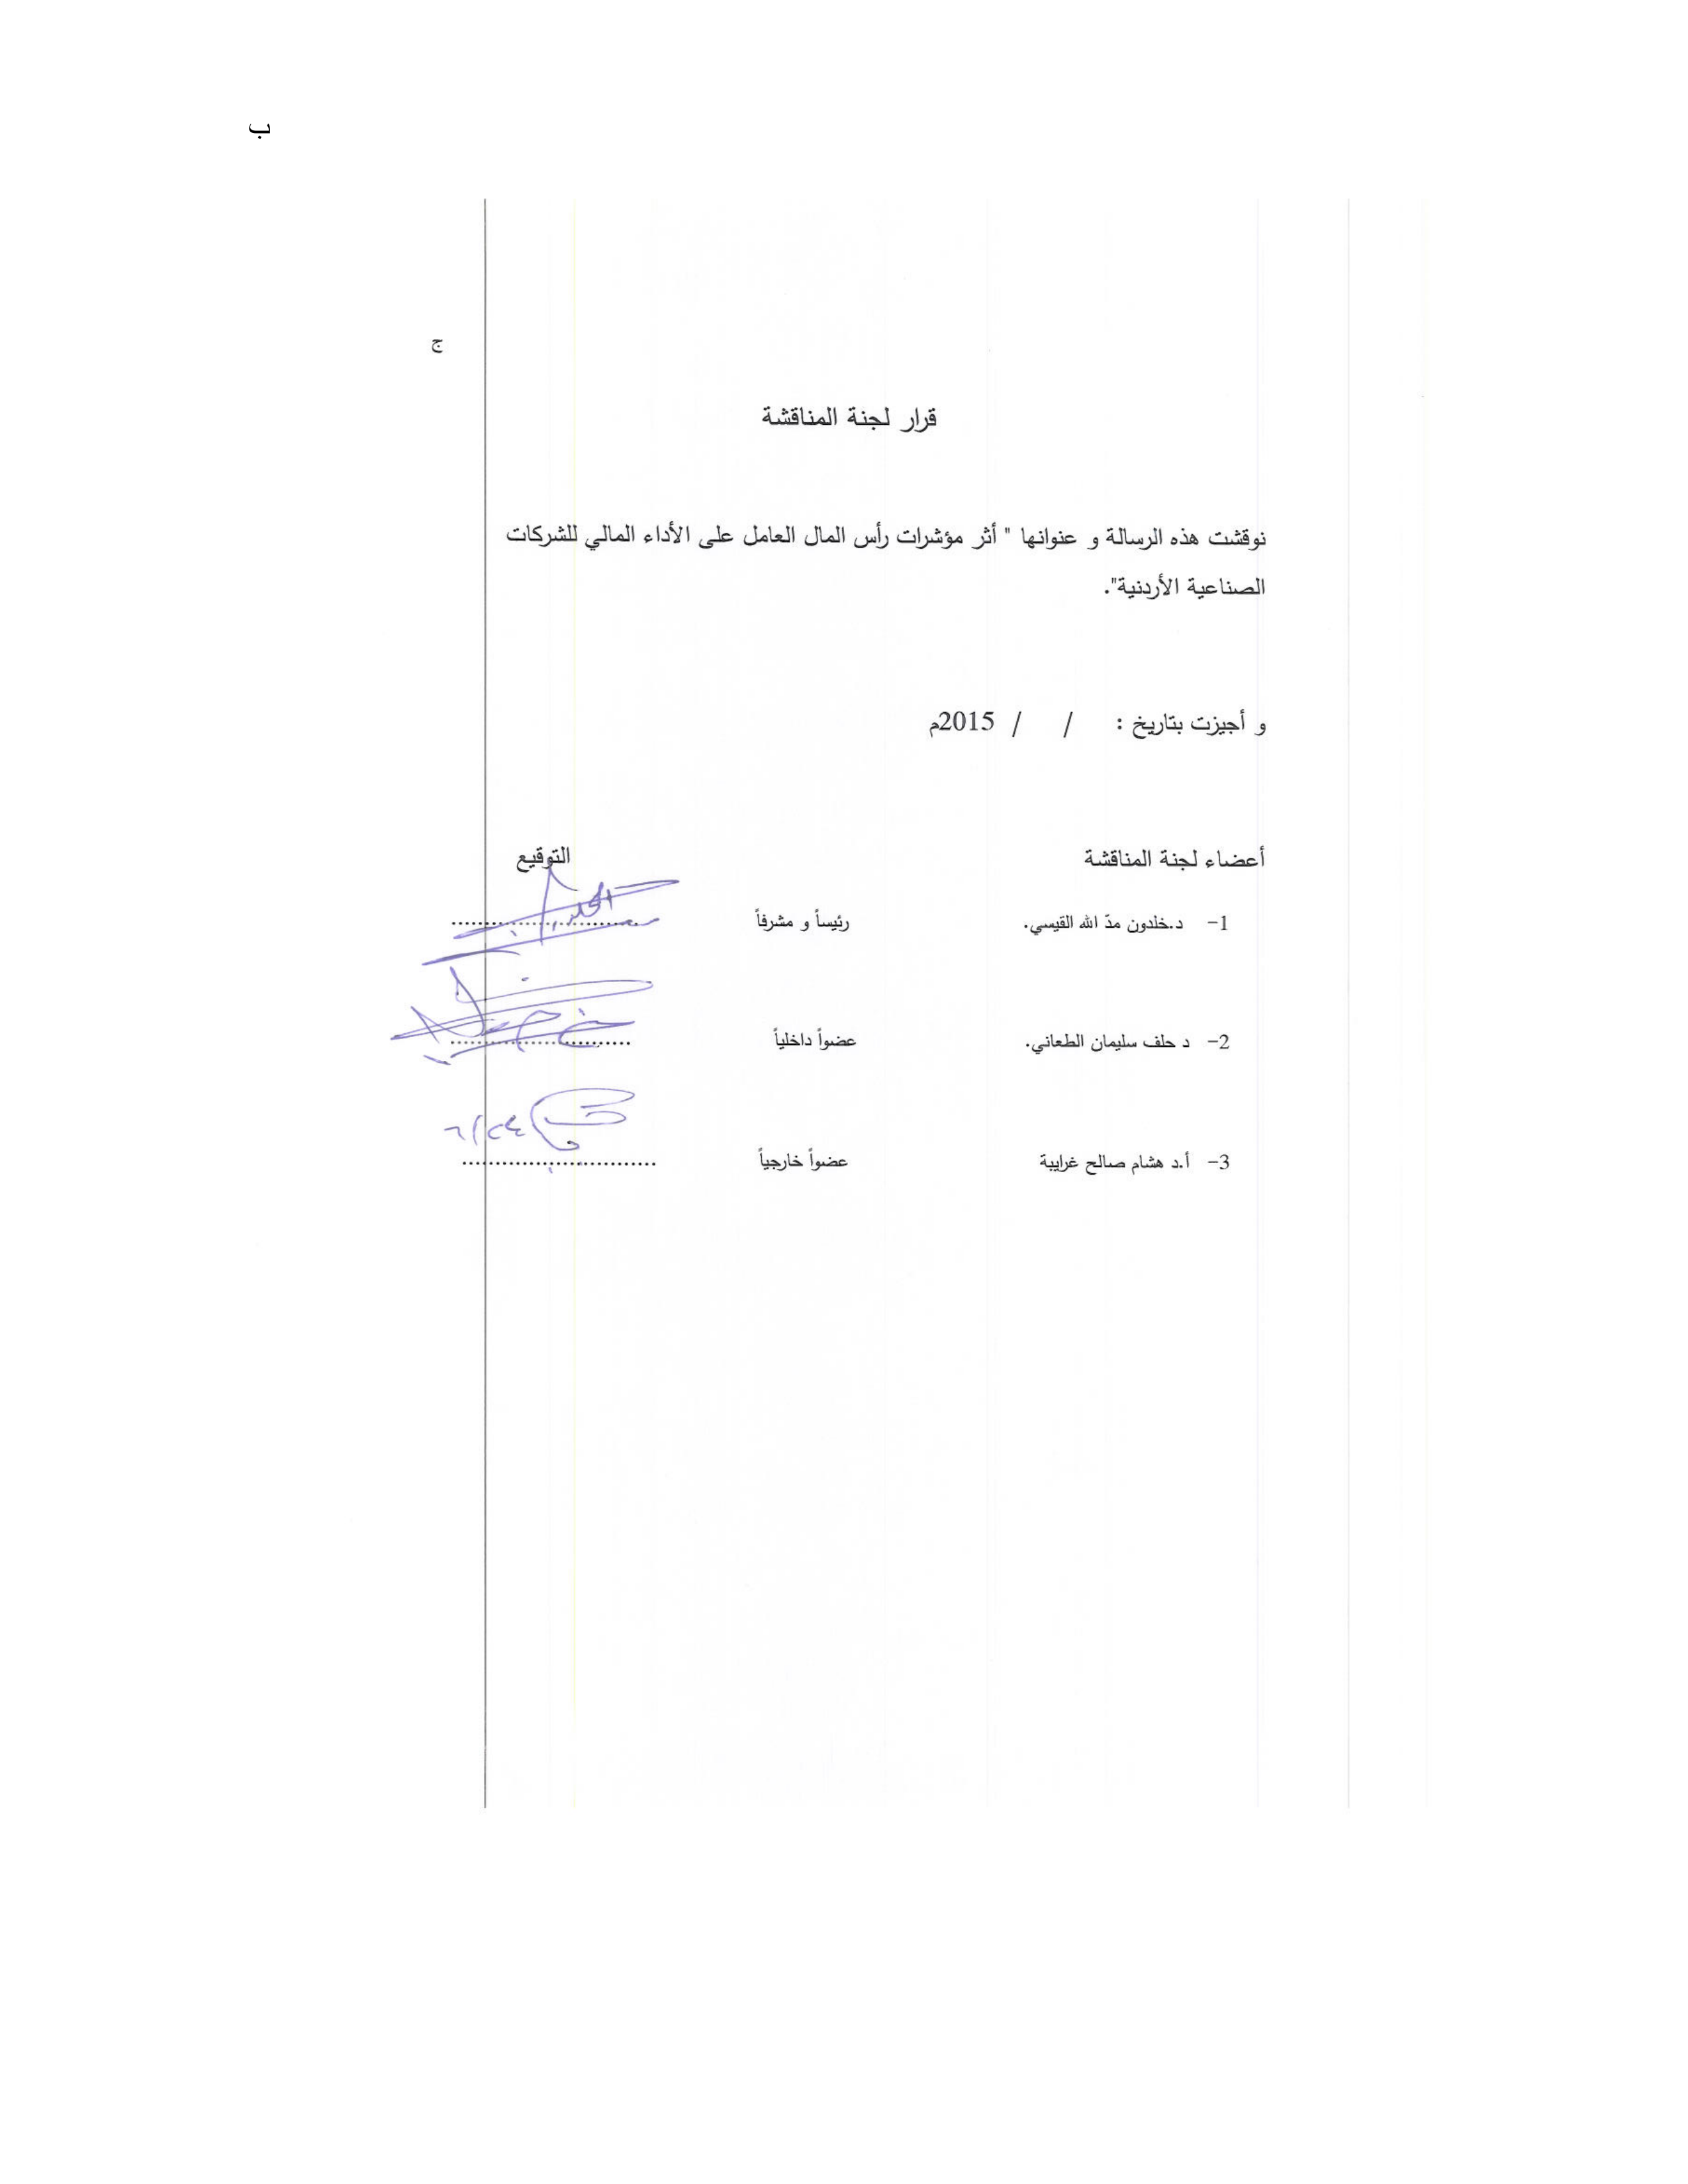 ب
ج
قرار لجنة المناقشة
نوقشت هذه الرسالة و عنوانها " أثر مؤشرات رأس المال العامل على الأداء المالي للشركات
الصناعية الأردنية".
و أجيزت بتاريخ : / / 2015م
أعضاء لجنة المناقشة التوقيع
1- د.خلدون مدّ الله القيسي. رئيساً و مشرفاً ............................
2- د حلف سليمان الطعاني. عضواً داخلياً ............................
٦/٢٤
3- أ.د هشام صالح غرايبة عضواً خارجياً ............................